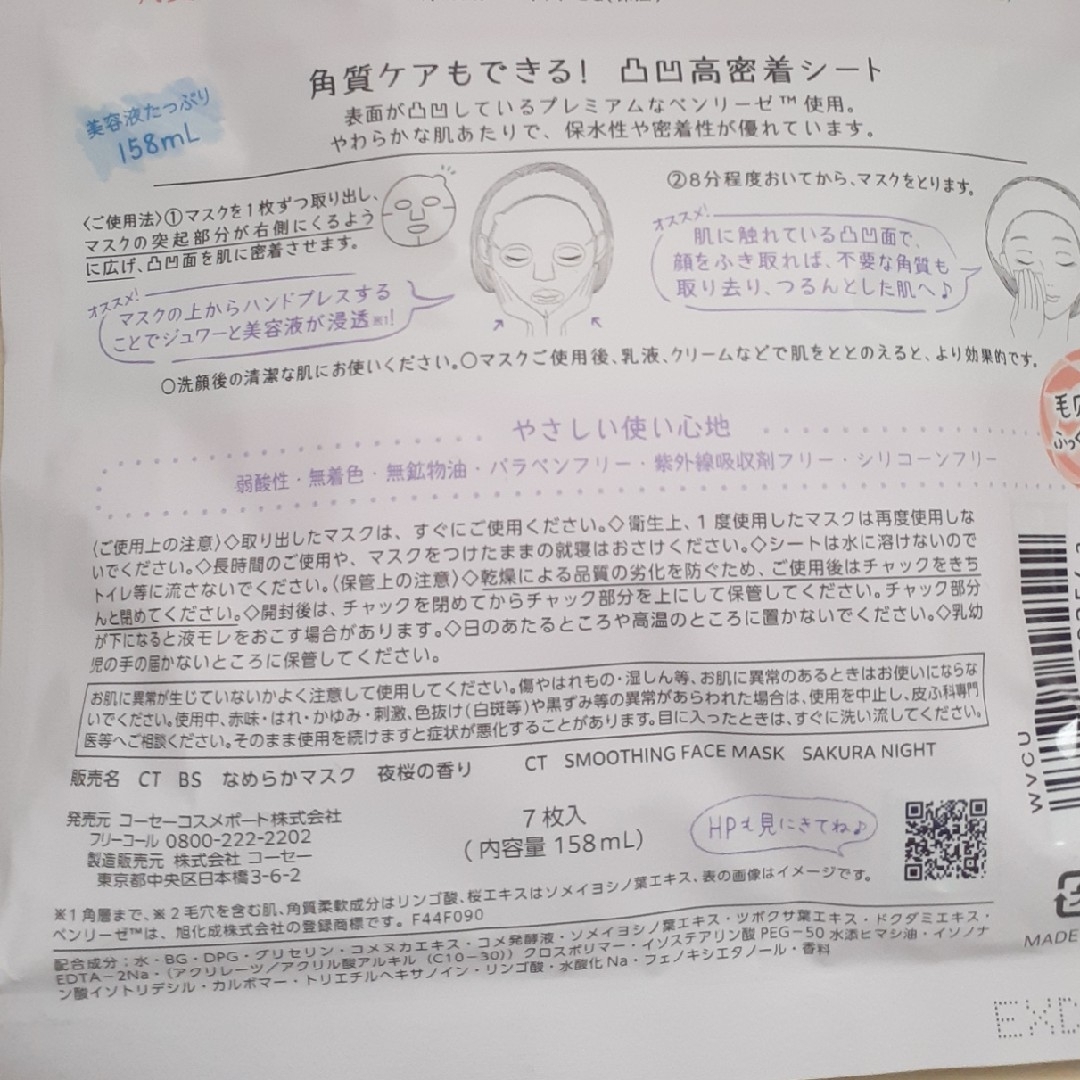 角質ケアもできる! 凸凹高密着シート
表面が凸凹しているプレミアムなベンリーゼ™使用。
やわらかな肌あたりで、保水性や密着性が優れています。
美容液たっぷり
158mL
〈ご使用法〉①マスクを1枚ずつ取り出し、
マスクの突起部分が右側にくるよう
に広げ、凸凹面を肌に密着させます。
オススメ!
マスクの上からハンドプレスする
ことでジュワーと美容液が浸透※1!
②8分程度おいてから、マスクをとります。
オススメ!
肌に触れている凸凹面で、
顔をふき取れば、不要な角質も
取り去り、つるんとした肌へ♪
○洗顔後の清潔な肌にお使いください。○マスクご使用後、乳液、クリームなどで肌をととのえると、より効果的です。
やさしい使い心地
弱酸性・無着色・無鉱物油・パラベンフリー・紫外線吸収剤フリー・シリコーンフリー
〈ご使用上の注意〉◇取り出したマスクは、すぐにご使用ください。◇衛生上、1度使用したマスクは再度使用しな
いでください。◇長時間のご使用や、マスクをつけたままの就寝はおさけください。◇シートは水に溶けないので
トイレ等に流さないでください。〈保管上の注意〉◇乾燥による品質の劣化を防ぐため、ご使用後はチャックをきち
んと閉めてください。◇開封後は、チャックを閉めてからチャック部分を上にして保管してください。チャック部分
が下になると液モレをおこす場合があります。◇日のあたるところや高温のところに置かないでください。◇乳幼
児の手の届かないところに保管してください。
お肌に異常が生じていないかよく注意して使用してください。傷やはれもの・湿しん等、お肌に異常のあるときはお使いにならな
いでください。使用中、赤味・はれ・かゆみ・刺激、色抜け(白斑等)や黒ずみ等の異常があらわれた場合は、使用を中止し、皮ふ科専門
医等へご相談ください。そのまま使用を続けますと症状が悪化することがあります。目に入ったときは、すぐに洗い流してください。
販売名 CT BS なめらかマスク 夜桜の香り CT SMOOTHING FACE MASK SAKURA NIGHT
発売元 コーセーコスメポート株式会社
フリーコール 0800-222-2202
製造販売元 株式会社 コーセー
東京都中央区日本橋3-6-2
7枚入
(内容量 158mL)
HPも見にきてね♪
WVCU
※1 角層まで、※2 毛穴を含む肌、角質柔軟成分はリンゴ酸、桜エキスはソメイヨシノ葉エキス、表の画像はイメージです。
ベンリーゼ™は、旭化成株式会社の登録商標です。F44F090
配合成分:水・BG・DPG・グリセリン・コメヌカエキス・コメ発酵液・ソメイヨシノ葉エキス・ツボクサ葉エキス・ドクダミエキス・
EDTA-2Na・(アクリレーツ/アクリル酸アルキル(C10-30))クロスポリマー・イソステアリン酸PEG-50水添ヒマシ油・イソノナ
ン酸イソトリデシル・カルボマー・トリエチルヘキサノイン・リンゴ酸・水酸化Na・フェノキシエタノール・香料
MADE